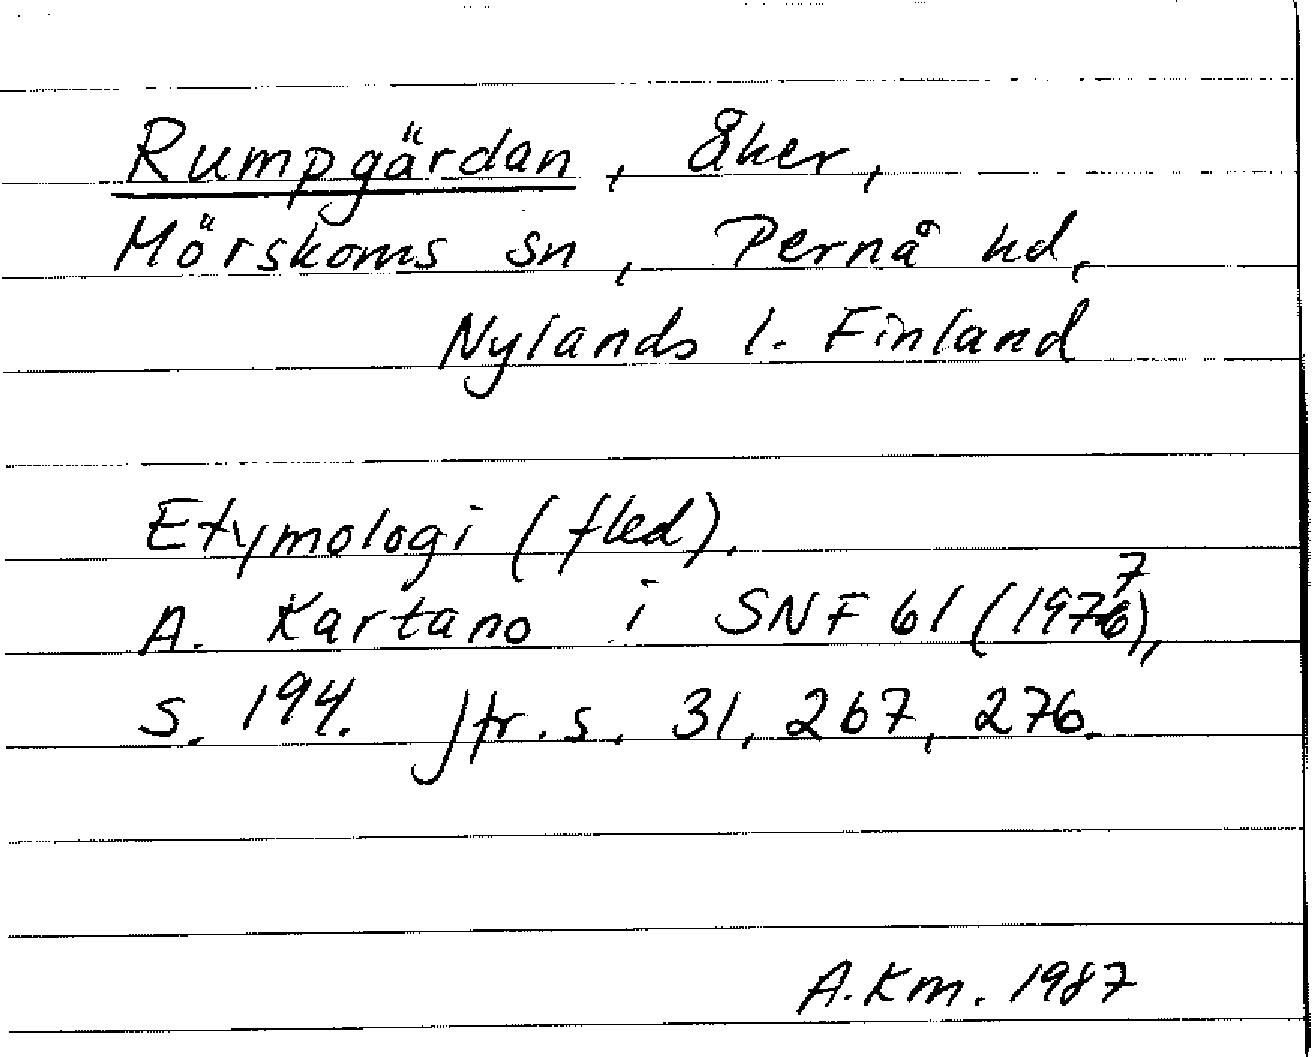 Rumpgärdan, åker,
Mörskoms sn, Pernå hd,
Nylands l. Finland
Etymologi (fled).
A. Kartano i SNF 61 (1977),
s. 194. Jfr. s. 31, 267, 276.
A.Km. 1987